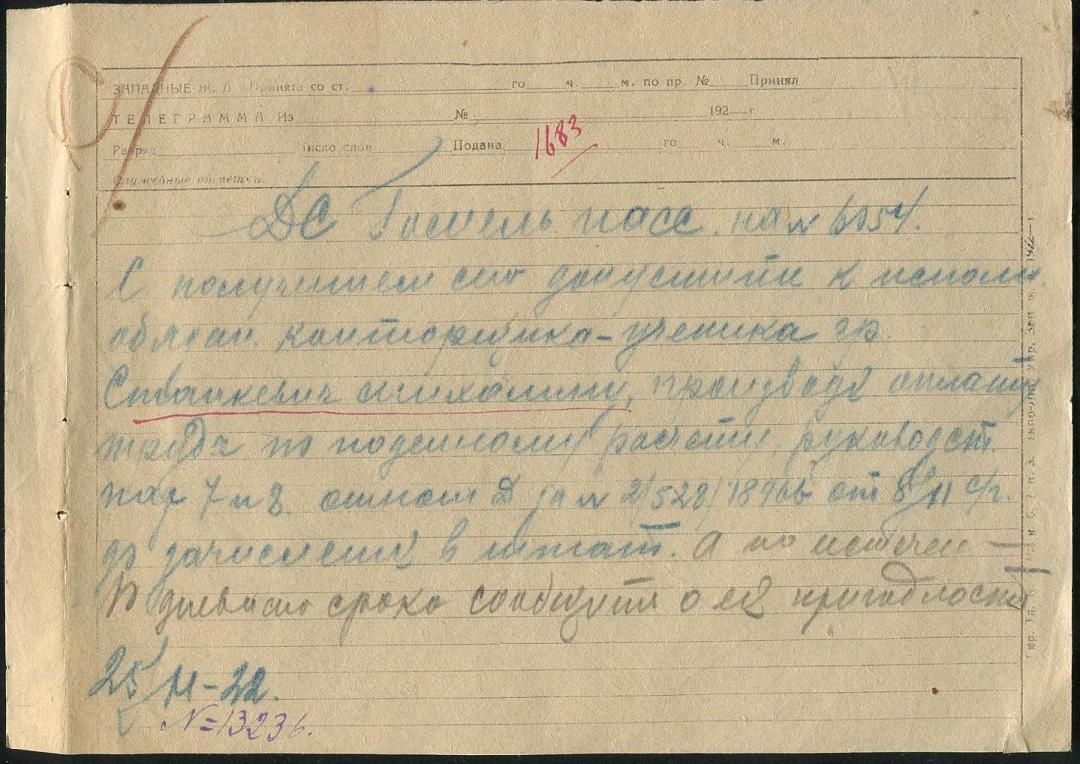 ЗАПАДНЫЕ Ж. Д. Принята со ст. го ч. м. по пр. № Принял
ТЕЛЕГРАММА Из № 192 г.
Разряд Число слов Подана го ч. м.
1683
Служебные отметки
ДС Гомель пасс. на №6054.
С получением сего допустить к исполн.
обязан. конторщика-ученика гр.
Станкевич Михалину, производя оплату
труда по поденному расчету, руководст.
пар 7 и 8. от 8/11 с/г.
до зачисления в штат. А по истечен
дневного срока сообщить о её пригодности
25/11-22.
N=13236.